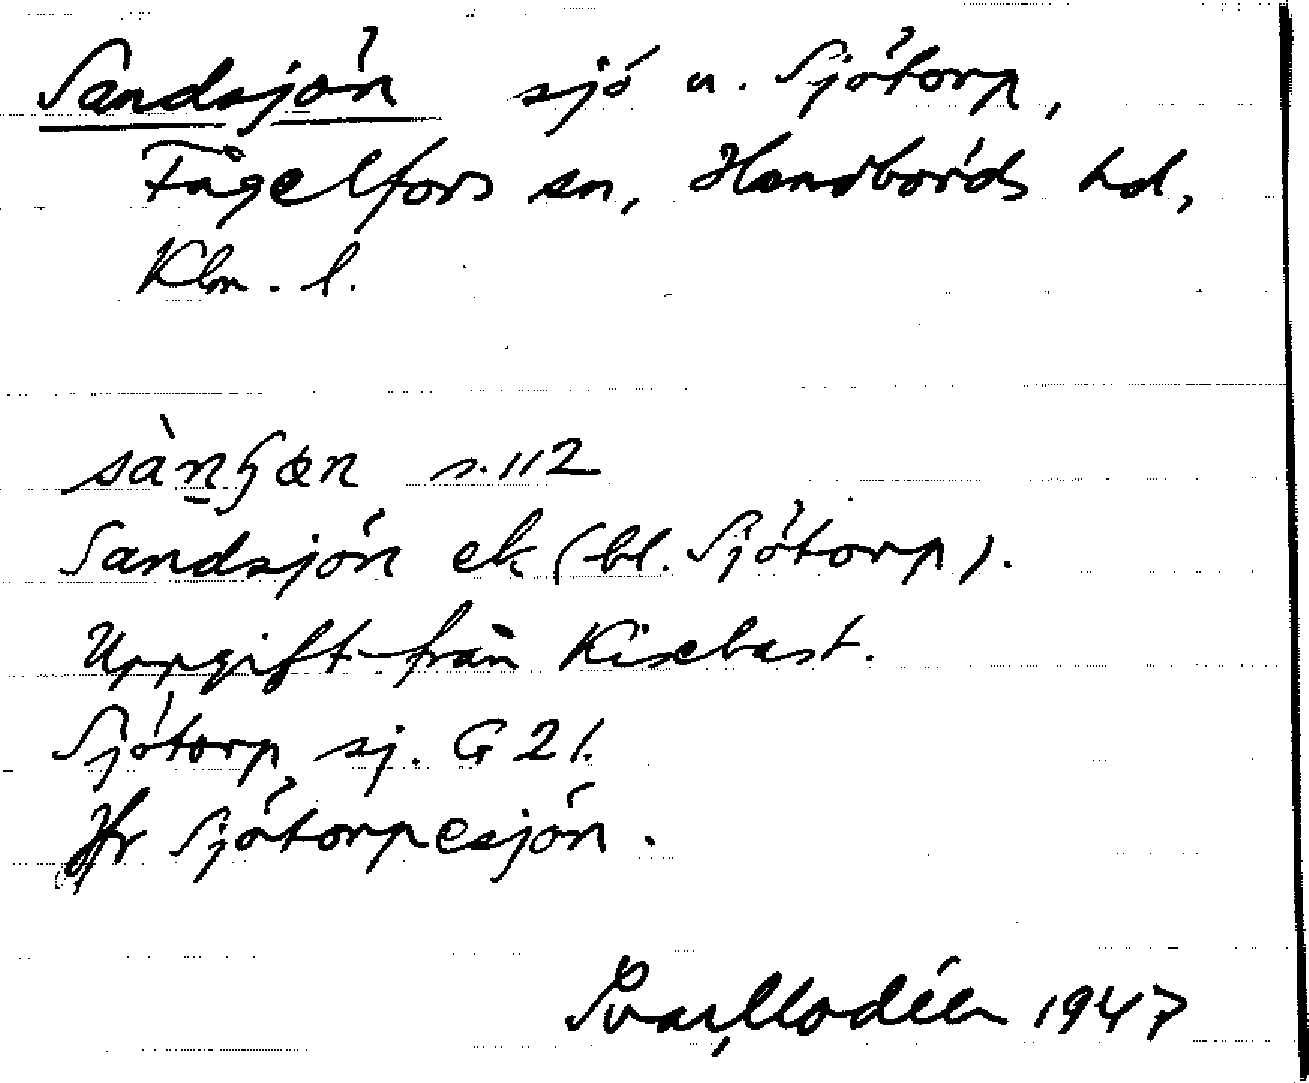 Sandsjön sjö u. Sjötorp,
Fågelfors sn, Handbörds hd,
Klm. l.
s. 112
Sandsjön ek (bl. Sjötorp).
Uppgift från Kisebast.
Sjötorp, sj. G 21.
Jfr Sjötorpesjön.
Ivar Modéer 1947